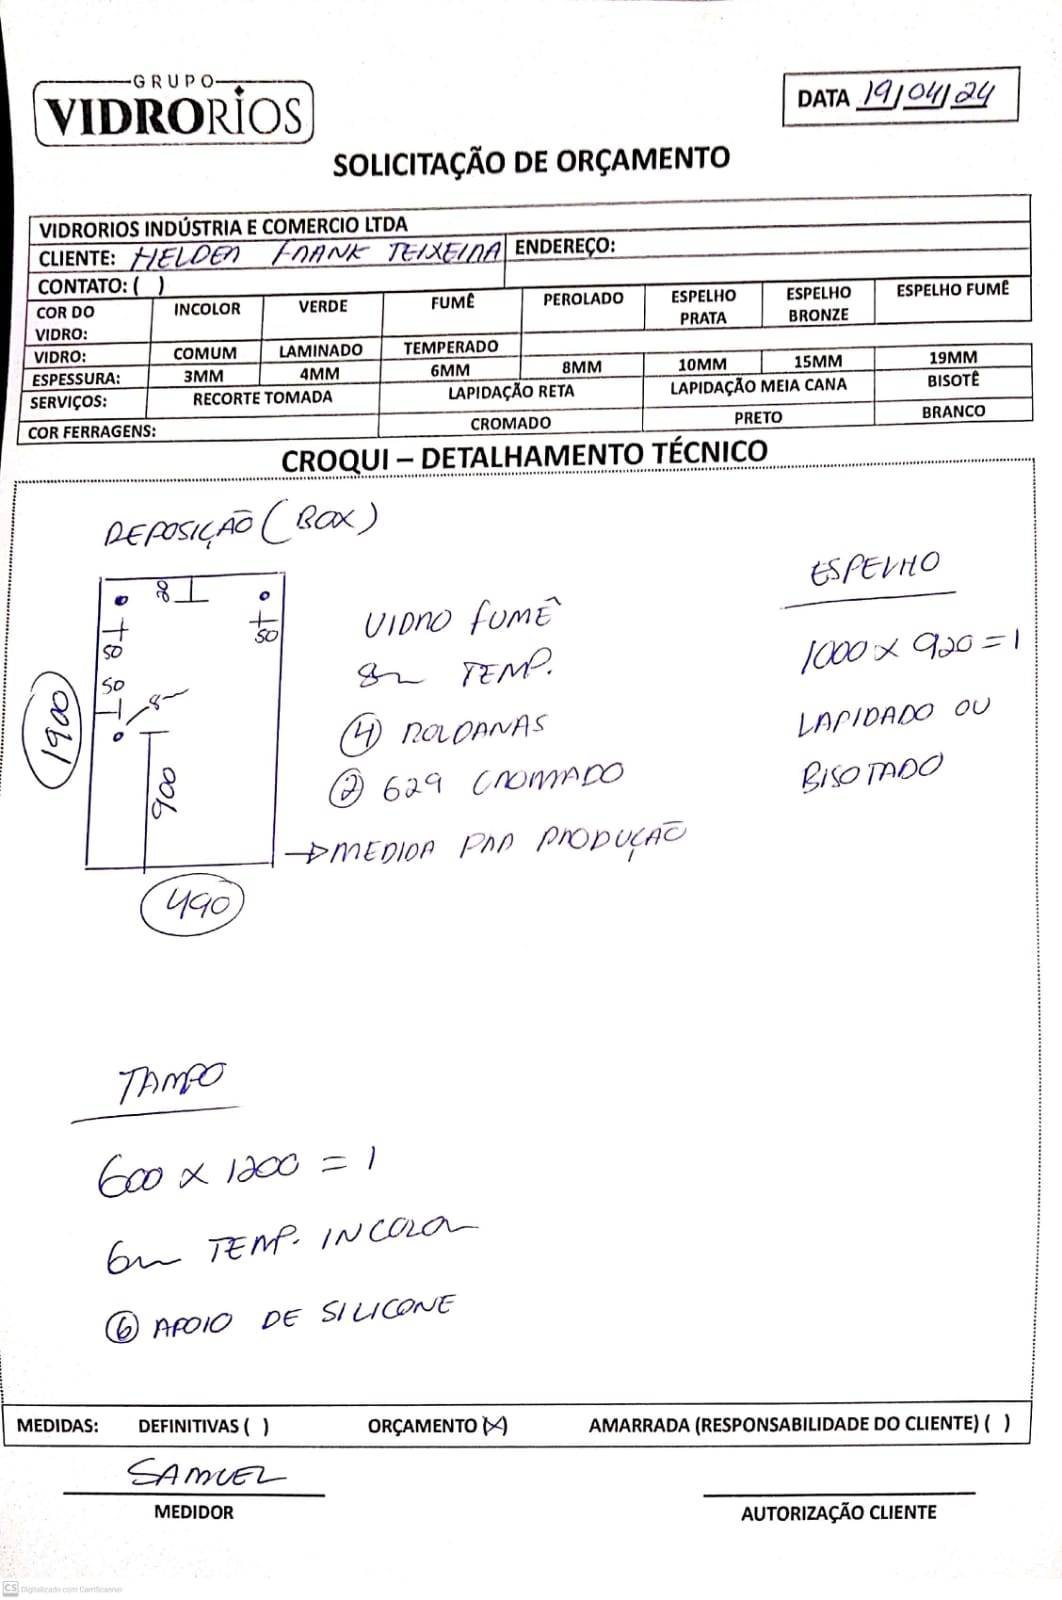 GRUPO
VIDRORIOS
DATA 19/04/24
SOLICITAÇÃO DE ORÇAMENTO
VIDRORIOS INDÚSTRIA E COMERCIO LTDA
CLIENTE: HELDER FRANK TEIXEIRA ENDEREÇO:
CONTATO: ( )
COR DO VIDRO: INCOLOR VERDE FUMÊ PEROLADO ESPELHO PRATA ESPELHO BRONZE ESPELHO FUMÊ
VIDRO: COMUM LAMINADO TEMPERADO
ESPESSURA: 3MM 4MM 6MM 8MM 10MM 15MM 19MM
SERVIÇOS: RECORTE TOMADA LAPIDAÇÃO RETA LAPIDAÇÃO MEIA CANA BISOTÊ
COR FERRAGENS: CROMADO PRETO BRANCO
CROQUI – DETALHAMENTO TÉCNICO
REPOSIÇÃO (BOX)
50
50
50
8
1900
900
490
VIDRO FUMÊ
8m TEMP.
4 ROLDANAS
2 629 CROMADO
MEDIDA PRA PRODUÇÃO
ESPELHO
1000 x 920 = 1
LAPIDADO OU
BISOTADO
TAMPO
600 x 1200 = 1
6m TEMP. INCOLOR
6 APOIO DE SILICONE
MEDIDAS: DEFINITIVAS ( ) ORÇAMENTO (X) AMARRADA (RESPONSABILIDADE DO CLIENTE) ( )
SAMUEL
MEDIDOR AUTORIZAÇÃO CLIENTE
CS Digitalizado com CamScanner